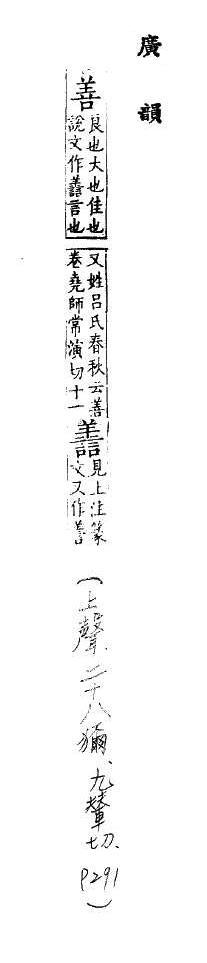 廣韻
善
良也大也佳也
說文作譱言也
又姓呂氏春秋云善
卷堯師常演切十一
譱
見上注篆
文又作善
(上聲.二十八獮、九輦切.P291)